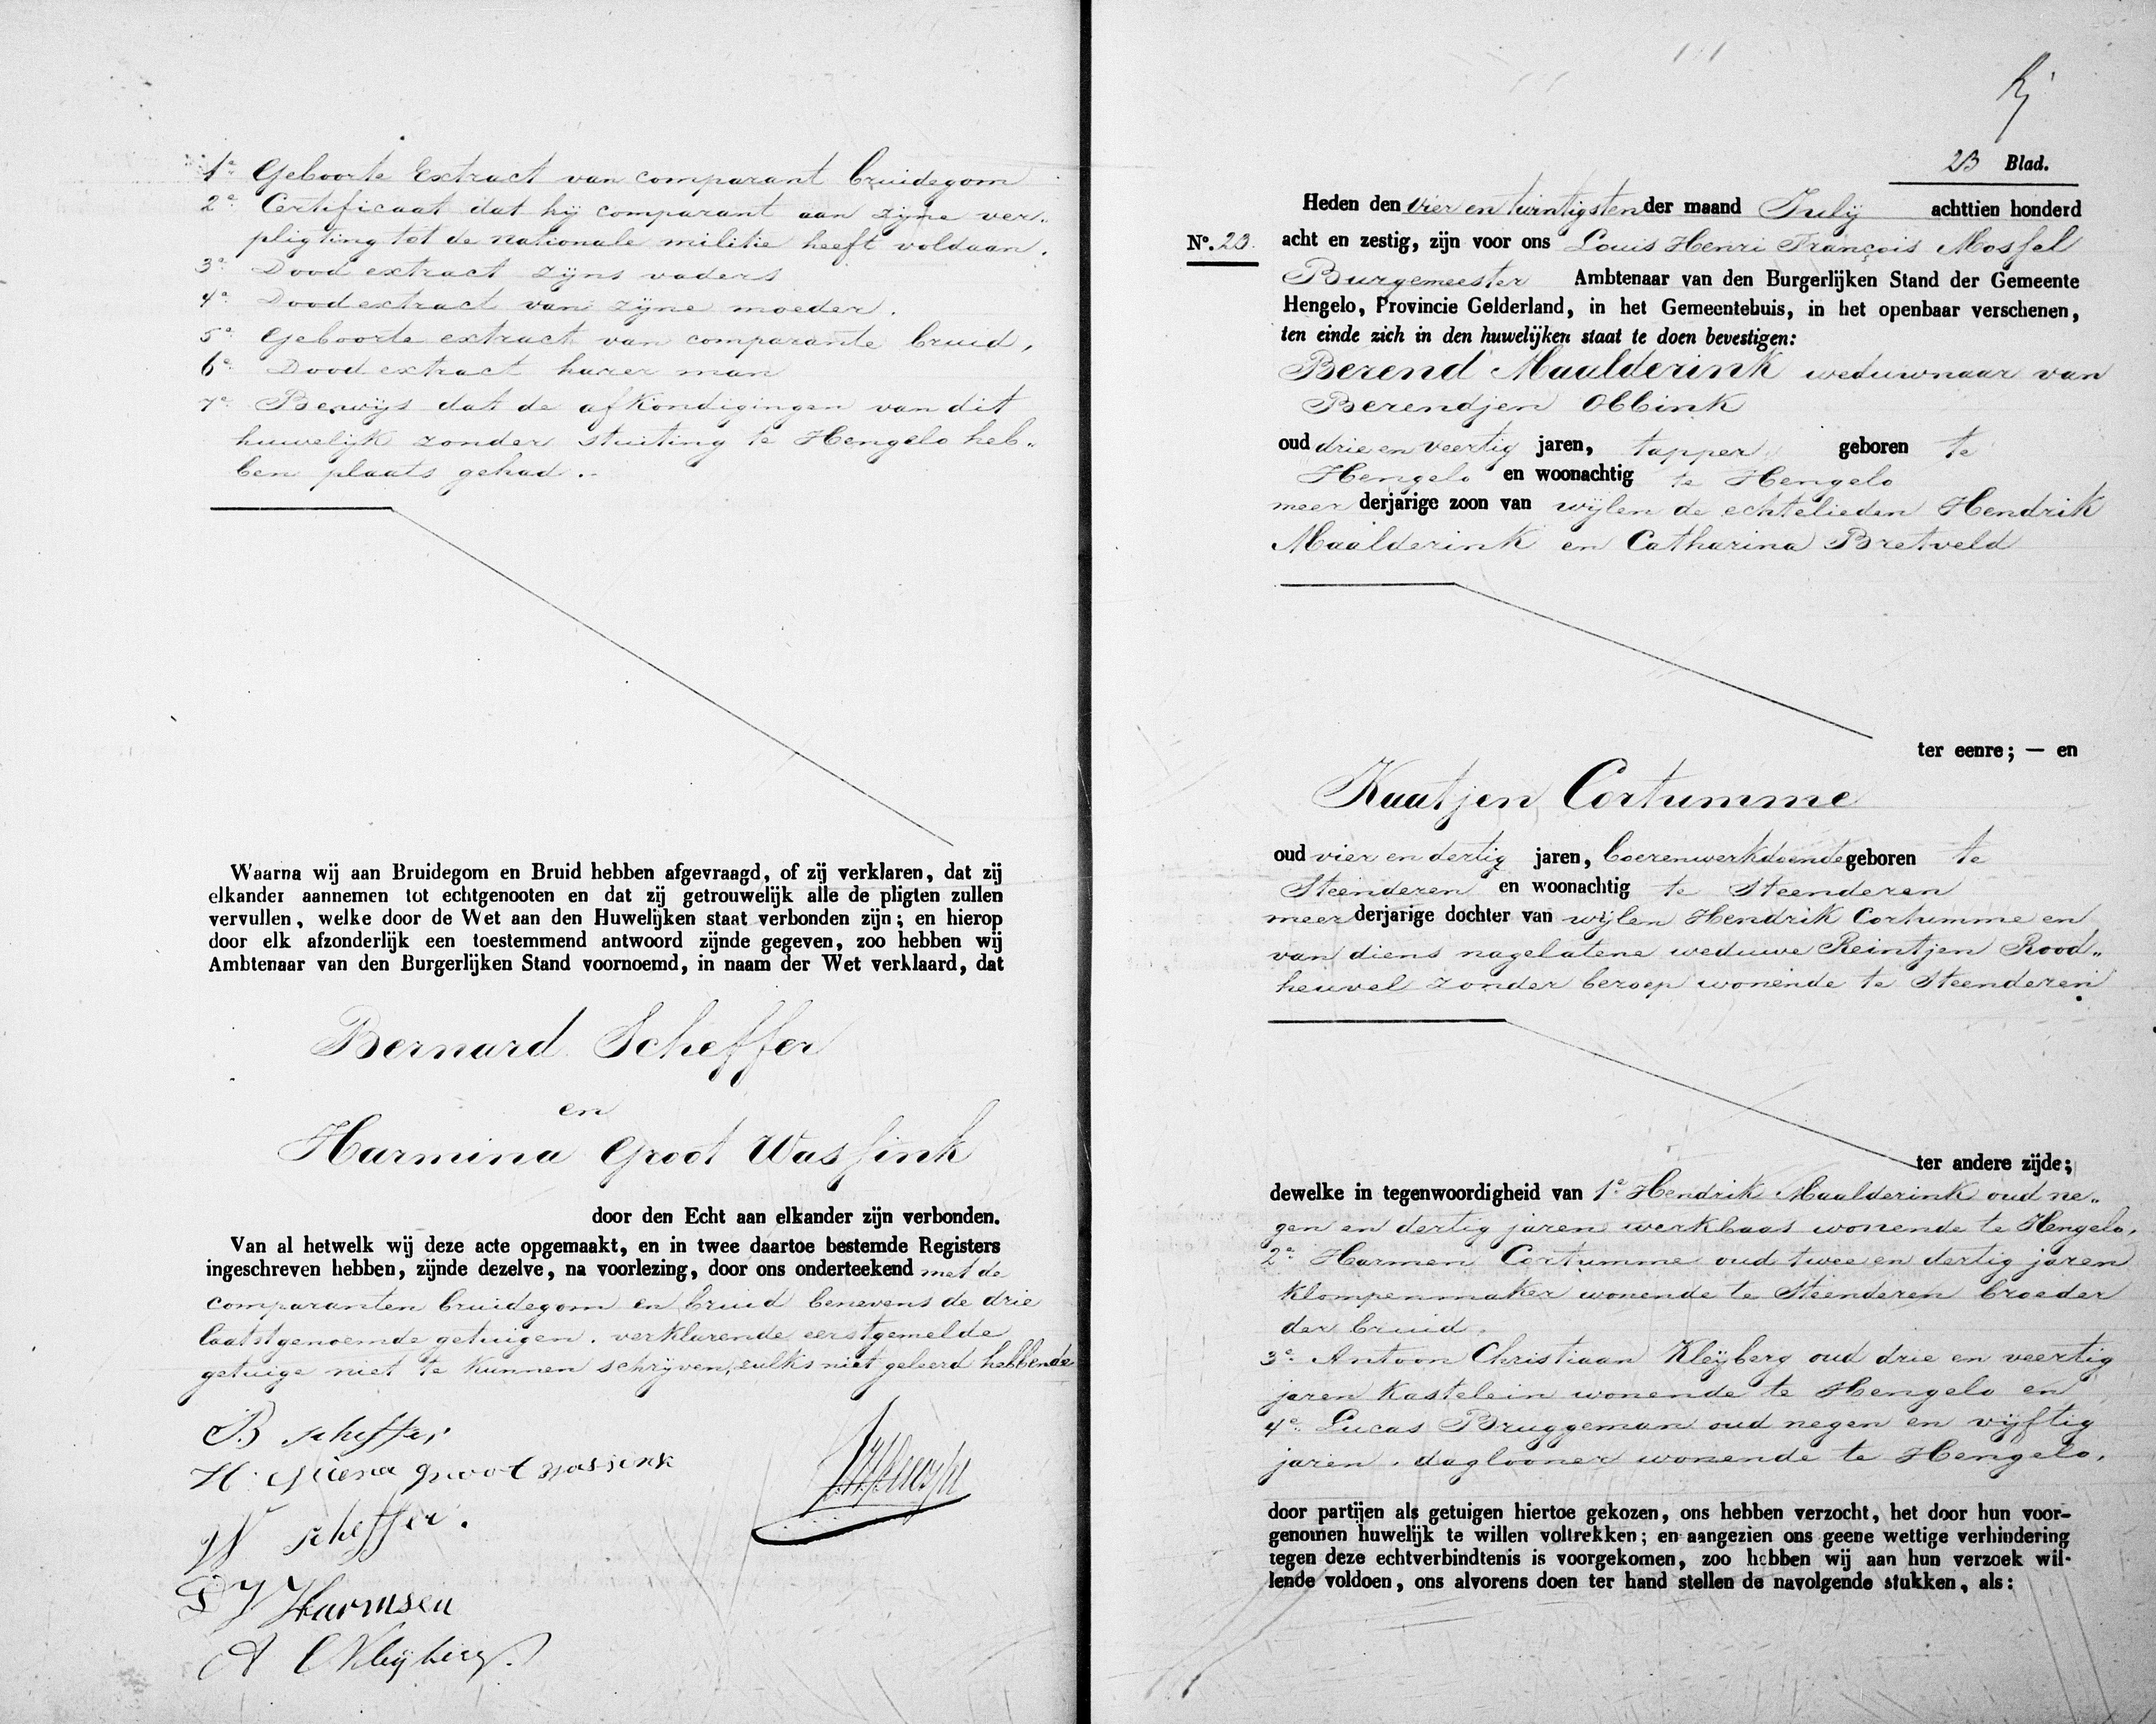 1e Geboorte Extract van comparant bruidegom
2e Certificaat dat hij comparant aan zijne ver„
pligting tot de nationale militie heeft voldaan.
3e Dood extract zijns vaders
4e Doodextract van zijne moeder.
5e Geboorte extract van comparante bruid,
6e Dood extract harer man
7e Bewijs dat de afkondigingen van dit
huwelijk zonder stuiting te Hengelo heb„
ben plaats gehad.
Waarna wij aan Bruidegom en Bruid hebben afgevraagd, of zij verklaren, dat zij
elkander aannemen tot echtgenooten en dat zij getrouwelijk alle de pligten zullen
vervullen, welke door de Wet aan den Huwelijken staat verbonden zijn; en hierop
door elk afzonderlijk een toestemmend antwoord zijnde gegeven, zoo hebben wij
Ambtenaar van den Burgerlijken Stand voornoemd, in naam der Wet verklaard, dat
Bernard Scheffer
en
Harmina Groot Wassink
door den Echt aan elkander zijn verbonden.
Van al hetwelk wij deze acte opgemaakt, en in twee daartoe bestemde Registers
ingeschreven hebben, zijnde dezelve, na voorlezing, door ons onderteekend met de
comparanten bruidegom en bruid benevens de drie
laatstgenoemde getuigen. verklarende eerstgemelde
getuige niet te kunnen schrijven, zulks niet geleerd hebbende
B scheffer
H. groot wassink
W scheffer.
Harmsen
A C Kleyberg.
23 Blad.
Heden den vier en twintigsten der maand July achttien honderd
No. 23. acht en zestig, zijn voor ons Louis Henri François Mossel
Burgemeester Ambtenaar van den Burgerlijken Stand der Gemeente
Hengelo, Provincie Gelderland, in het Gemeentehuis, in het openbaar verschenen,
ten einde zich in den huwelijken staat te doen bevestigen:
Berend Maalderink weduwnaar van
Berendjen Obbink
oud drie en veertig jaren, tapper geboren te
Hengelo en woonachtig te Hengelo
meer derjarige zoon van wijlen de echtelieden Hendrik
Maalderink en Catharina Bretveld
ter eenre; — en
Kaatjen Cortumme
oud vier en dertig jaren, boerenwerkdoende geboren te
Steenderen en woonachtig te Steenderen
meer derjarige dochter van wijlen Hendrik Cortumme en
van diens nagelatene weduwe Reintjen Rood„
heuvel zonder beroep wonende te Steenderen
ter andere zijde;
dewelke in tegenwoordigheid van 1e Hendrik Maalderink oud ne„
gen en dertig jaren werkbaas wonende te Hengelo,
2e Harmen Cortumme oud twee en dertig jaren
klompenmaker wonende te Steenderen broeder
der bruid.
3e Antoon Christiaan Kleyberg oud drie en veertig
jaren kastelein wonende te Hengelo en
4e Lucas Bruggeman oud negen en vijftig
jaren. daglooner wonende te Hengelo,
door partijen als getuigen hiertoe gekozen, ons hebben verzocht, het door hun voor-
genomen huwelijk te willen voltrekken; en aangezien ons geene wettige verhindering
tegen deze echtverbindtenis is voorgekomen, zoo hebben wij aan hun verzoek wil-
lende voldoen, ons alvorens doen ter hand stellen de navolgende stukken, als: